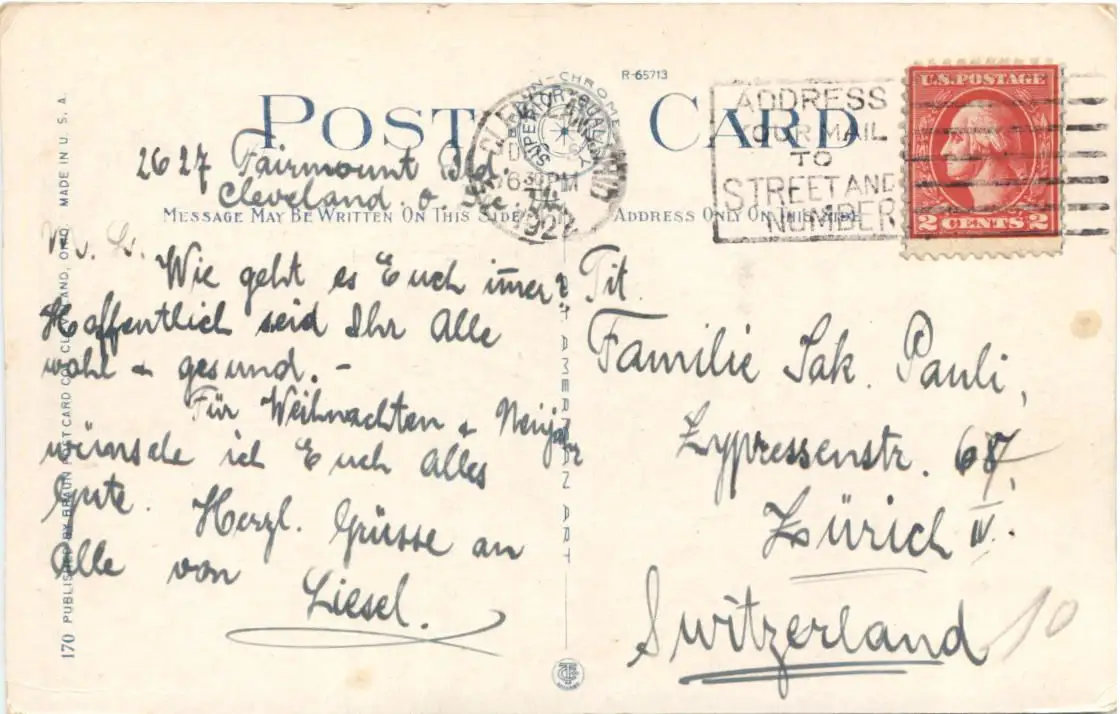 R-65713
POST CARD
CLEVELAND
630 PM
1921
ADDRESS
YOUR MAIL
TO
STREET AND
NUMBER
U.S. POSTAGE
2 CENTS 2
2627 Fairmount Bld.
Cleveland. O. Dec.
MESSAGE MAY BE WRITTEN ON THIS SIDE
ADDRESS ONLY ON THIS SIDE
M. L.
Wie geht es Euch im̅er?
Hoffentlich seid Ihr Alle
wohl & gesund. –
Für Weihnachten & Neujahr
wünsche ich Euch alles
Gute. Herzl. Grüsse an
Alle von
Liesel.
Tit.
Familie Jak. Pauli,
Zypressenstr. 68,
Zürich IV.
Switzerland
10
170 PUBLISHED BY BRAUN POST CARD CO., CLEVELAND, OHIO MADE IN U. S. A.
AMERICAN ART